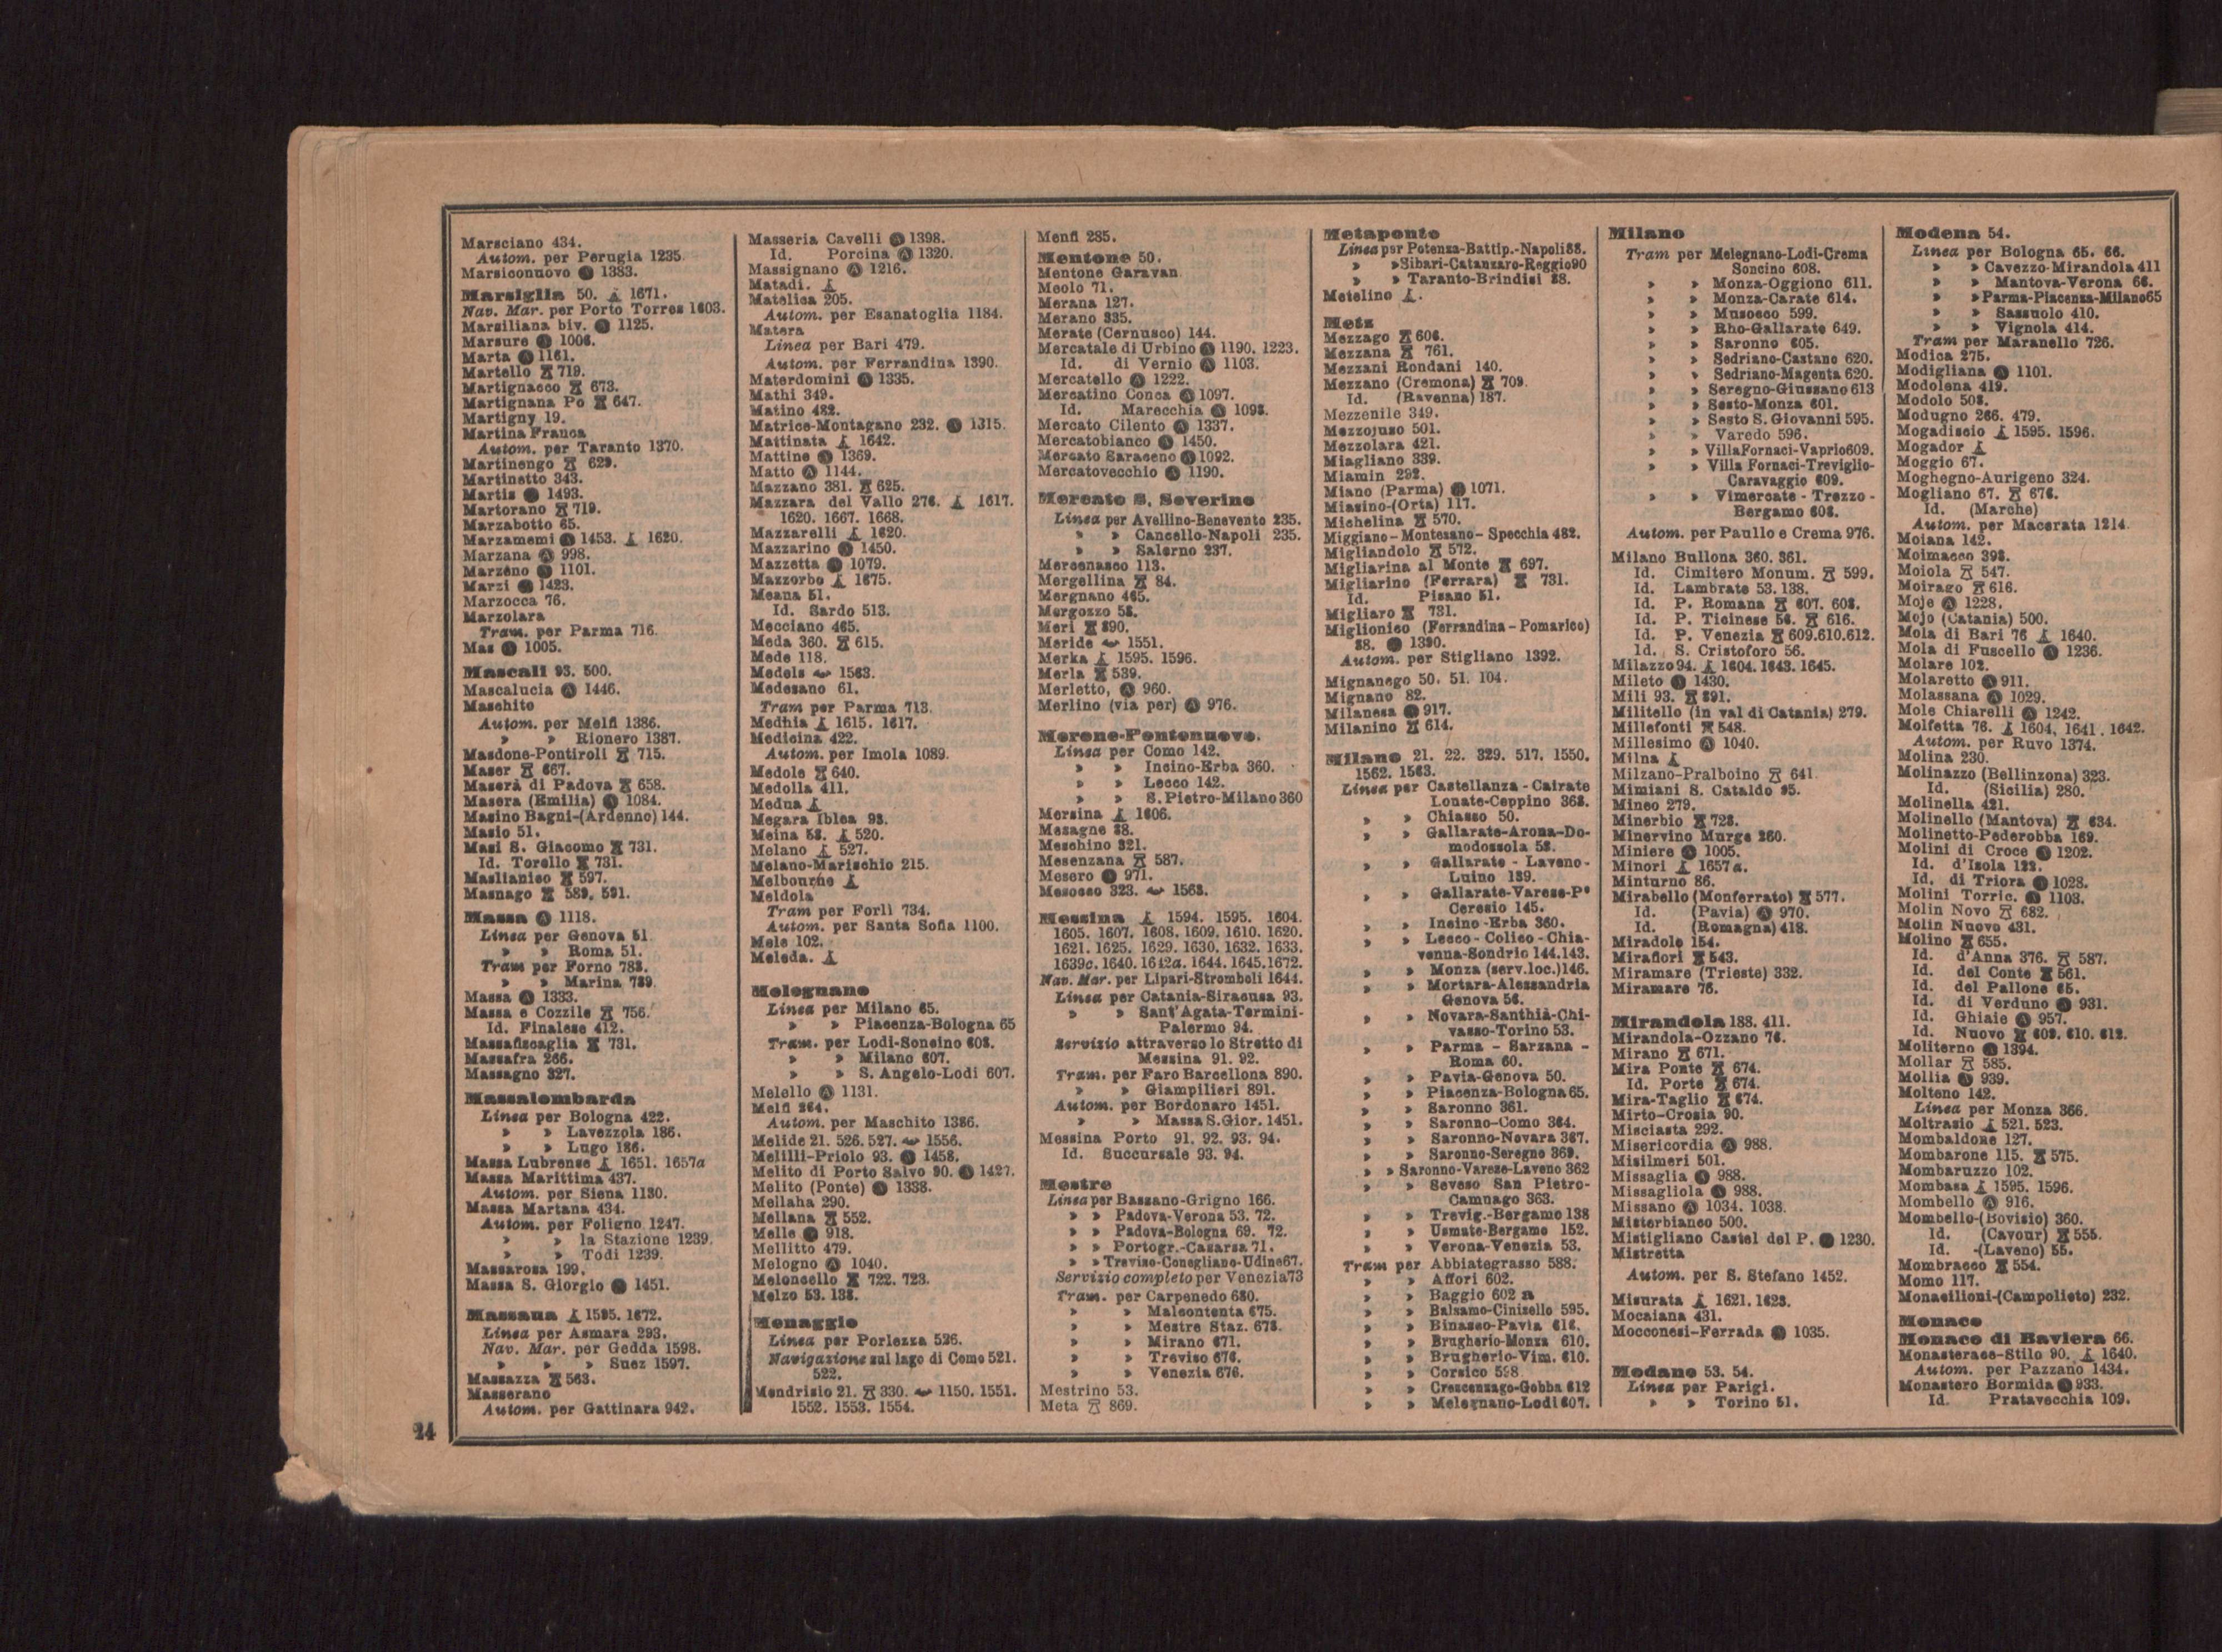 Marsciano 434.
Autom. per Perugia 1235
Marsiconuovo Ⓐ 1383.
Marsiglia 50. 1671.
Nav. Mar. per Porto Torres 1603.
Marsiliana biv. Ⓐ 1125.
Marsure Ⓐ 1006.
Marta Ⓐ 1161.
Martello 719.
Martignacco 673.
Martignana Po 647.
Martigny 19.
Martina Franca
Autom. per Taranto 1370.
Martinengo 629.
Martinetto 343.
Martis Ⓐ 1493.
Martorano 719.
Marzabotto 65.
Marzamemi Ⓐ 1453. 1620.
Marzana Ⓐ 998.
Marzeno Ⓐ 1101.
Marzi Ⓐ 1423.
Marzocca 76.
Marzolara
Tram. per Parma 716.
Mas Ⓐ 1005.
Mascali 93. 500.
Mascalucia Ⓐ 1446.
Maschito
Autom. per Melfi 1386.
» » Rionero 1387.
Masdone-Pontiroli 715.
Maser 667.
Maserà di Padova 658.
Masera (Emilia) Ⓐ 1084.
Masino Bagni-(Ardenno) 144.
Masio 51.
Masi S. Giacomo 731.
Id. Torello 731.
Maslianico 597.
Masnago 589. 591.
Massa Ⓐ 1118.
Linea per Genova 51
» » Roma 51.
Tram per Forno 788.
» » Marina 789.
Massa Ⓐ 1333.
Massa e Cozzile 756.
Id. Finalese 412.
Massafiscaglia 731.
Massafra 266.
Massagno 327.
Massalombarda
Linea per Bologna 422.
» » Lavezzola 186.
» » Lugo 186.
Massa Lubrense 1651. 1657a
Massa Marittima 437.
Autom. per Siena 1130.
Massa Martana 434.
Autom. per Foligno 1247.
» » la Stazione 1239.
» » Todi 1239.
Massarosa 199.
Massa S. Giorgio Ⓐ 1451.
Massaua 1595. 1672.
Linea per Asmara 293.
Nav. Mar. per Gedda 1598.
» » » Suez 1597.
Massazza 563.
Masserano
Autom. per Gattinara 942.
24
Masseria Cavelli Ⓐ 1398.
Id. Porcina Ⓐ 1320.
Massignano Ⓐ 1216.
Matadi.
Matelica 205.
Autom. per Esanatoglia 1184.
Matera
Linea per Bari 479.
Autom. per Ferrandina 1390.
Materdomini Ⓐ 1335.
Mathi 349.
Matino 482.
Matrice-Montagano 232. Ⓐ 1315.
Mattinata 1642.
Mattine Ⓐ 1369.
Matto Ⓐ 1144.
Mazzano 381. 625.
Mazzara del Vallo 276. 1617.
1620. 1667. 1668.
Mazzarelli 1620.
Mazzarino Ⓐ 1450.
Mazzetta Ⓐ 1079.
Mazzorbo 1675.
Meana 51.
Id. Sardo 513.
Mecciano 465.
Meda 360. 615.
Mede 118.
Medels 1563.
Medesano 61.
Tram per Parma 713.
Medhia 1615. 1617.
Medicina 422.
Autom. per Imola 1089.
Medole 640.
Medolla 411.
Medua
Megara Iblea 93.
Meina 58. 520.
Melano 527.
Melano-Marischio 215.
Melbourne
Meldola
Tram per Forlì 734.
Autom. per Santa Sofia 1100.
Mele 102.
Meleda.
Melegnano
Linea per Milano 65.
» » Piacenza-Bologna 65
Tram. per Lodi-Soncino 608.
» » Milano 607.
» » S. Angelo-Lodi 607.
Melello Ⓐ 1131.
Melfi 264.
Autom. per Maschito 1386.
Melide 21. 526. 527. 1556.
Melilli-Priolo 93. Ⓐ 1458.
Melito di Porto Salvo 90. Ⓐ 1427.
Melito (Ponte) Ⓐ 1338.
Mellaha 290.
Mellana 552.
Melle Ⓐ 918.
Mellitto 479.
Melogno Ⓐ 1040.
Meloncello 722. 723.
Melzo 53. 138.
Menaggio
Linea per Porlezza 526.
Navigazione sul lago di Como 521.
522.
Mendrisio 21. 330. 1150. 1551.
1552. 1553. 1554.
Menfi 285.
Mentone 50.
Mentone Garavan
Meolo 71.
Merana 127.
Merano 335.
Merate (Cernusco) 144.
Mercatale di Urbino Ⓐ 1190. 1223.
Id. di Vernio Ⓐ 1103.
Mercatello Ⓐ 1222.
Mercatino Conca Ⓐ 1097.
Id. Marecchia Ⓐ 1098.
Mercato Cilento Ⓐ 1337.
Mercatobianco Ⓐ 1450.
Mercato Saraceno Ⓐ 1092.
Mercatovecchio Ⓐ 1190.
Mercato S. Severino
Linea per Avellino-Benevento 235.
» » Cancello-Napoli 235.
» » Salerno 237.
Mercenasco 113.
Mergellina 84.
Mergnano 465.
Mergozzo 58.
Meri 890.
Meride 1551.
Merka 1595. 1596.
Merla 539.
Merletto, Ⓐ 960.
Merlino (via per) Ⓐ 976.
Merone-Pontenuovo.
Linea per Como 142.
» » Incino-Erba 360.
» » Lecco 142.
» » S. Pietro-Milano 360
Mersina 1606.
Mesagne 88.
Meschino 321.
Mesenzana 587.
Mesero Ⓐ 971.
Mesocco 323. 1563.
Messina 1594. 1595. 1604.
1605. 1607. 1608. 1609. 1610. 1620.
1621. 1625. 1629. 1630. 1632. 1633.
1639c. 1640. 1642a. 1644. 1645. 1672.
Nav. Mar. per Lipari-Stromboli 1644.
Linea per Catania-Siracusa 93.
» » Sant'Agata-Termini-
Palermo 94.
Servizio attraverso lo Stretto di
Messina 91. 92.
Tram. per Faro Barcellona 890.
» » Giampilieri 891.
Autom. per Bordonaro 1451.
» » Massa S. Gior. 1451.
Messina Porto 91. 92. 93. 94.
Id. Succursale 93. 94.
Mestre
Linea per Bassano-Grigno 166.
» » Padova-Verona 53. 72.
» » Padova-Bologna 69. 72.
» » Portogr.-Casarsa 71.
» » Treviso-Conegliano-Udine 67.
Servizio completo per Venezia 73
Tram. per Carpenedo 680.
» » Malcontenta 675.
» » Mestre Staz. 678.
» » Mirano 671.
» » Treviso 676.
» » Venezia 676.
Mestrino 53.
Meta 869.
Metaponto
Linea per Potenza-Battip.-Napoli 88.
» » Sibari-Catanzaro-Reggio 90
» » Taranto-Brindisi 88.
Metelino
Metz
Mezzago 606.
Mezzana 761.
Mezzani Rondani 140.
Mezzano (Cremona) 709.
Id. (Ravenna) 187.
Mezzenile 349.
Mezzojuso 501.
Mezzolara 421.
Miagliano 339.
Miamin 292.
Miano (Parma) Ⓐ 1071.
Miasino-(Orta) 117.
Michelina 570.
Miggiano-Montesano-Specchia 482.
Migliandolo 572.
Migliarina al Monte 697.
Migliarino (Ferrara) 731.
Id. Pisano 51.
Migliaro 731.
Miglionico (Ferrandina-Pomarico)
88. Ⓐ 1390.
Autom. per Stigliano 1392.
Mignanego 50. 51. 104.
Mignano 82.
Milanesa Ⓐ 917.
Milanino 614.
Milano 21. 22. 329. 517. 1550.
1562. 1563.
Linea per Castellanza - Cairate
Lonate-Ceppino 368.
» » Chiasso 50.
» » Gallarate-Arona-Do-
modossola 58.
» » Gallarate - Laveno-
Luino 139.
» » Gallarate-Varese-P°
Ceresio 145.
» » Incino-Erba 360.
» » Lecco - Colico - Chia-
venna-Sondrio 144. 143.
» » Monza (serv. loc.) 146.
» » Mortara-Alessandria
Genova 56.
» » Novara-Santhià-Chi-
vasso-Torino 53.
» » Parma - Sarzana -
Roma 60.
» » Pavia-Genova 50.
» » Piacenza-Bologna 65.
» » Saronno 361.
» » Saronno-Como 364.
» » Saronno-Novara 367.
» » Saronno-Seregno 369.
» » Saronno-Varese-Laveno 362
» » Seveso San Pietro-
Camnago 363.
» » Trevig.-Bergamo 138
» » Usmate-Bergamo 152.
» » Verona-Venezia 53.
Tram per Abbiategrasso 588.
» » Affori 602.
» » Baggio 602 a
» » Balsamo-Cinisello 595.
» » Binasco-Pavia 616.
» » Brugherio-Monza 610.
» » Brugherio-Vim. 610.
» » Corsico 598
» » Crescenzago-Gobba 612
» » Melegnano-Lodi 607.
Milano
Tram per Melegnano-Lodi-Crema
Soncino 608.
» » Monza-Oggiono 611.
» » Monza-Carate 614.
» » Musocco 599.
» » Rho-Gallarate 649.
» » Saronno 605.
» » Sedriano-Castano 620.
» » Sedriano-Magenta 620.
» » Seregno-Giussano 613
» » Sesto-Monza 601.
» » Sesto S. Giovanni 595.
» » Varedo 596.
» » Villa Fornaci-Vaprio 609.
» » Villa Fornaci-Treviglio-
Caravaggio 609.
» » Vimercate - Trezzo -
Bergamo 608.
Autom. per Paullo e Crema 976.
Milano Bullona 360. 361.
Id. Cimitero Monum. 599.
Id. Lambrate 53. 138.
Id. P. Romana 607. 608.
Id. P. Ticinese 56. 616.
Id. P. Venezia 609. 610. 612.
Id. S. Cristoforo 56.
Milazzo 94. 1604. 1643. 1645.
Mileto Ⓐ 1430.
Mili 93. 891.
Militello (in val di Catania) 279.
Millefonti 548.
Millesimo Ⓐ 1040.
Milna
Milzano-Pralboino 641
Mimiani S. Cataldo 95.
Mineo 279.
Minerbio 728.
Minervino Murge 260.
Miniere Ⓐ 1005.
Minori 1657a.
Minturno 86.
Mirabello (Monferrato) 577.
Id. (Pavia) Ⓐ 970.
Id. (Romagna) 418.
Miradolo 154.
Mirafiori 543.
Miramare (Trieste) 332.
Miramare 76.
Mirandola 188. 411.
Mirandola-Ozzano 76.
Mirano 671.
Mira Ponte 674.
Id. Porte 674.
Mira-Taglio 674.
Mirto-Crosia 90.
Misciasta 292.
Misericordia Ⓐ 988.
Misilmeri 501.
Missaglia Ⓐ 988.
Missagliola Ⓐ 988.
Missano Ⓐ 1034. 1038.
Misterbianco 500.
Mistigliano Castel del P. Ⓐ 1230.
Mistretta
Autom. per S. Stefano 1452.
Misurata 1621. 1623.
Mocaiana 431.
Mocconesi-Ferrada Ⓐ 1035.
Modane 53. 54.
Linea per Parigi.
» » Torino 51.
Modena 54.
Linea per Bologna 65. 66.
» » Cavezzo-Mirandola 411
» » Mantova-Verona 66.
» » Parma-Piacenza-Milano 65
» » Sassuolo 410.
» » Vignola 414.
Tram per Maranello 726.
Modica 275.
Modigliana Ⓐ 1101.
Modolena 419.
Modolo 508.
Modugno 266. 479.
Mogadiscio 1595. 1596.
Mogador
Moggio 67.
Moghegno-Aurigeno 324.
Mogliano 67. 676.
Id. (Marche)
Autom. per Macerata 1214
Moiana 142.
Moimacco 398.
Moiola 547.
Moirago 616.
Moje Ⓐ 1228.
Mojo (Catania) 500.
Mola di Bari 76 1640.
Mola di Fuscello Ⓐ 1236.
Molare 102.
Molaretto Ⓐ 911.
Molassana Ⓐ 1029.
Mole Chiarelli Ⓐ 1242.
Molfetta 76. 1604, 1641. 1642.
Autom. per Ruvo 1374.
Molina 230.
Molinazzo (Bellinzona) 323.
Id. (Sicilia) 280.
Molinella 421.
Molinello (Mantova) 634.
Molinetto-Pederobba 169.
Molini di Croce Ⓐ 1202.
Id. d'Isola 123.
Id. di Triora Ⓐ 1028.
Molini Torric. Ⓐ 1103.
Molin Novo 682.
Molin Nuovo 431.
Molino 655.
Id. d'Anna 376. 587.
Id. del Conte 561.
Id. del Pallone 65.
Id. di Verduno Ⓐ 931.
Id. Ghiaie Ⓐ 957.
Id. Nuovo 609. 610. 612.
Moliterno Ⓐ 1394.
Mollar 585.
Mollia Ⓐ 939.
Molteno 142.
Linea per Monza 366.
Moltrasio 521. 523.
Mombaldone 127.
Mombarone 115. 575.
Mombaruzzo 102.
Mombasa 1595. 1596.
Mombello Ⓐ 916.
Mombello-(Bovisio) 360.
Id. (Cavour) 555.
Id. -(Laveno) 55.
Mombracco 554.
Momo 117.
Monacilioni-(Campolieto) 232.
Monaco
Monaco di Baviera 66.
Monasterace-Stilo 90. 1640.
Autom. per Pazzano 1434.
Monastero Bormida Ⓐ 933.
Id. Pratavecchia 109.